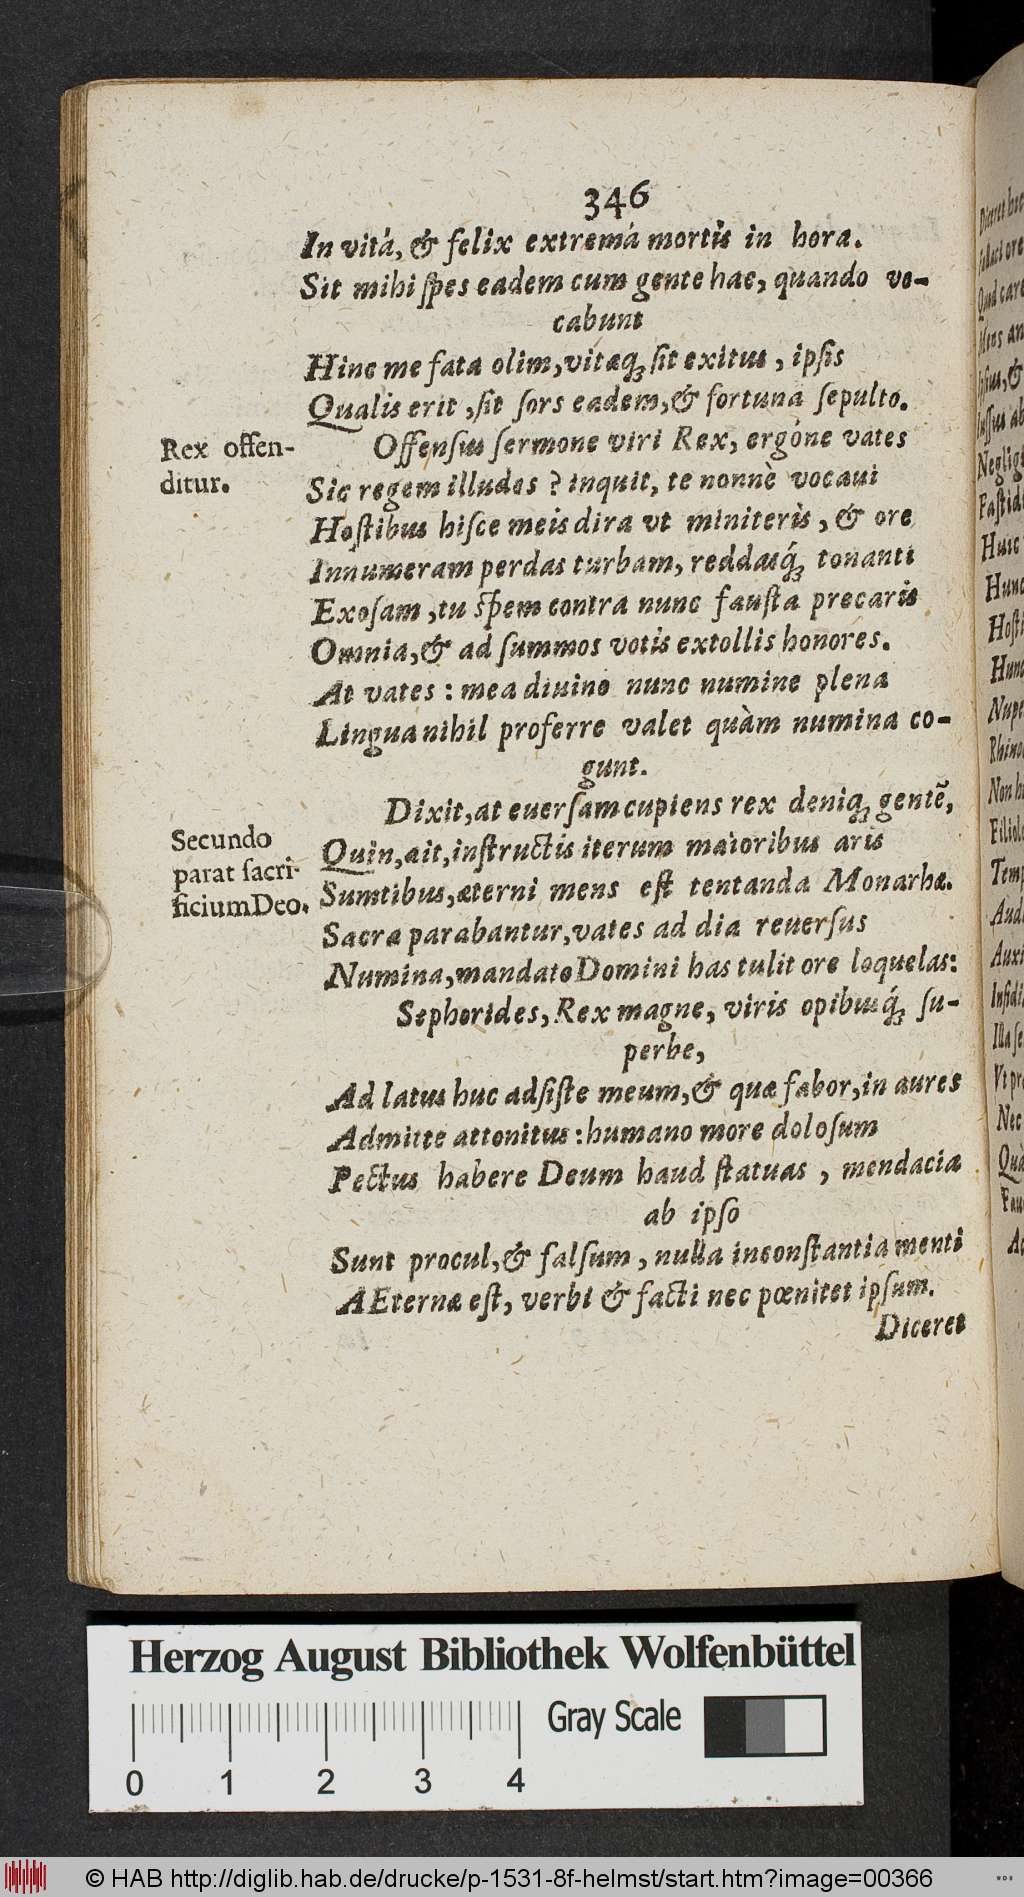 346
In vitá, & felix extremá mortis in hora.
Sit mihi ſpes eadem cum gente hac, quando vo-
cabunt
Hinc me fata olim, vitæq; ſit exitus, ipſis
Qualis erit, ſit ſors eadem, & fortuna ſepulto.
Rex offen-
ditur.
Offenſus ſermone viri Rex, ergóne vates
Sic regem illudes? inquit, te nonnè vocaui
Hoſtibus hiſce meis dira vt miniteris, & ore
Innumeram perdas turbam, reddasq́; tonanti
Exoſam, tu ſpem contra nunc fauſta precaris
Omnia, & ad ſummos votis extollis honores.
At vates: mea diuino nunc numine plena
Lingua nihil proferre valet quàm numina co-
gunt.
Dixit, at euerſam cupiens rex deniq; gentē,
Secundo
parat ſacri-
ficium Deo.
Quin, ait, inſtructis iterum maioribus aris
Sumtibus, æterni mens eſt tentanda Monarhæ.
Sacra parabantur, vates ad dia reuerſus
Numina, mandato Domini has tulit ore loquelas:
Sephorides, Rex magne, viris opibusq́; ſu-
perbe,
Ad latus huc adſiſte meum, & quæ fabor, in aures
Admitte attonitus: humano more doloſum
Pectus habere Deum haud ſtatuas, mendacia
ab ipſo
Sunt procul, & falſum, nulla inconſtantia menti
AEternæ eſt, verbi & facti nec pœnitet ipſum.
Diceret
Herzog August Bibliothek Wolfenbüttel
Gray Scale
0 1 2 3 4
© HAB http://diglib.hab.de/drucke/p-1531-8f-helmst/start.htm?image=00366